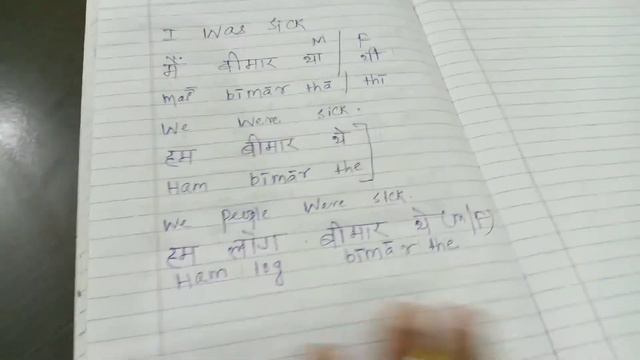 I was sick
M | F
मैं बीमार था | थी
maĩ bīmār thā | thī
We were sick.
हम बीमार थे
Ham bīmār the
We people were sick.
हम लोग बीमार थे (M/F)
Ham log bīmār the